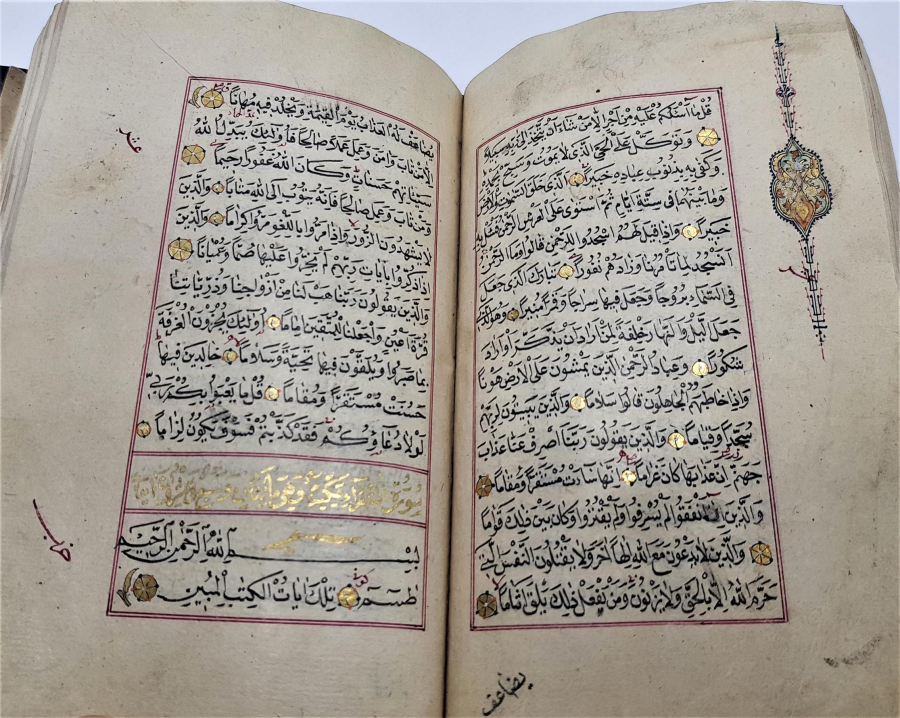 قُلْ مَا أَسْئَلُكُمْ عَلَيْهِ مِنْ أَجْرٍ إِلَّا مَنْ شَاءَ أَنْ يَتَّخِذَ إِلَى رَبِّهِ سَبِيلًا
وَتَوَكَّلْ عَلَى الْحَيِّ الَّذِي لَا يَمُوتُ وَسَبِّحْ بِحَمْدِهِ
وَكَفَى بِهِ بِذُنُوبِ عِبَادِهِ خَبِيرًا الَّذِي خَلَقَ السَّمٰوَاتِ وَالْأَرْضَ
وَمَا بَيْنَهُمَا فِي سِتَّةِ أَيَّامٍ ثُمَّ اسْتَوَى عَلَى الْعَرْشِ الرَّحْمٰنُ فَسْئَلْ بِهِ
خَبِيرًا وَإِذَا قِيلَ لَهُمُ اسْجُدُوا لِلرَّحْمٰنِ قَالُوا وَمَا الرَّحْمٰنُ
أَنَسْجُدُ لِمَا تَأْمُرُنَا وَزَادَهُمْ نُفُورًا تَبَارَكَ الَّذِي جَعَلَ
فِي السَّمَاءِ بُرُوجًا وَجَعَلَ فِيهَا سِرَاجًا وَقَمَرًا مُنِيرًا وَهُوَ الَّذِي
جَعَلَ اللَّيْلَ وَالنَّهَارَ خِلْفَةً لِمَنْ أَرَادَ أَنْ يَذَّكَّرَ أَوْ أَرَادَ
شُكُورًا وَعِبَادُ الرَّحْمٰنِ الَّذِينَ يَمْشُونَ عَلَى الْأَرْضِ هَوْنًا
وَإِذَا خَاطَبَهُمُ الْجَاهِلُونَ قَالُوا سَلَامًا وَالَّذِينَ يَبِيتُونَ لِرَبِّهِمْ
سُجَّدًا وَقِيَامًا وَالَّذِينَ يَقُولُونَ رَبَّنَا اصْرِفْ عَنَّا عَذَابَ
جَهَنَّمَ إِنَّ عَذَابَهَا كَانَ غَرَامًا إِنَّهَا سَاءَتْ مُسْتَقَرًّا وَمُقَامًا
وَالَّذِينَ إِذَا أَنْفَقُوا لَمْ يُسْرِفُوا وَلَمْ يَقْتُرُوا وَكَانَ بَيْنَ ذٰلِكَ قَوَامًا
وَالَّذِينَ لَا يَدْعُونَ مَعَ اللّٰهِ إِلٰهًا آخَرَ وَلَا يَقْتُلُونَ النَّفْسَ الَّتِي
حَرَّمَ اللّٰهُ إِلَّا بِالْحَقِّ وَلَا يَزْنُونَ وَمَنْ يَفْعَلْ ذٰلِكَ يَلْقَ أَثَامًا
يضاعف
يُضَاعَفْ لَهُ الْعَذَابُ يَوْمَ الْقِيٰمَةِ وَيَخْلُدْ فِيهِ مُهَانًا
إِلَّا مَنْ تَابَ وَآمَنَ وَعَمِلَ عَمَلًا صَالِحًا فَأُولٰئِكَ يُبَدِّلُ اللّٰهُ
سَيِّئَاتِهِمْ حَسَنَاتٍ وَكَانَ اللّٰهُ غَفُورًا رَحِيمًا
وَمَنْ تَابَ وَعَمِلَ صَالِحًا فَإِنَّهُ يَتُوبُ إِلَى اللّٰهِ مَتَابًا وَالَّذِينَ
لَا يَشْهَدُونَ الزُّورَ وَإِذَا مَرُّوا بِاللَّغْوِ مَرُّوا كِرَامًا وَالَّذِينَ
إِذَا ذُكِّرُوا بِآيَاتِ رَبِّهِمْ لَمْ يَخِرُّوا عَلَيْهَا صُمًّا وَعُمْيَانًا
وَالَّذِينَ يَقُولُونَ رَبَّنَا هَبْ لَنَا مِنْ أَزْوَاجِنَا وَذُرِّيَّاتِنَا
قُرَّةَ أَعْيُنٍ وَاجْعَلْنَا لِلْمُتَّقِينَ إِمَامًا أُولٰئِكَ يُجْزَوْنَ الْغُرْفَةَ
بِمَا صَبَرُوا وَيُلَقَّوْنَ فِيهَا تَحِيَّةً وَسَلَامًا خَالِدِينَ فِيهَا
حَسُنَتْ مُسْتَقَرًّا وَمُقَامًا قُلْ مَا يَعْبَؤُا بِكُمْ رَبِّي
لَوْلَا دُعَاؤُكُمْ فَقَدْ كَذَّبْتُمْ فَسَوْفَ يَكُونُ لِزَامًا
سورة الشعراء مكية وهي
بِسْمِ اللّٰهِ الرَّحْمٰنِ الرَّحِيمِ
طسم تِلْكَ آيَاتُ الْكِتَابِ الْمُبِينِ